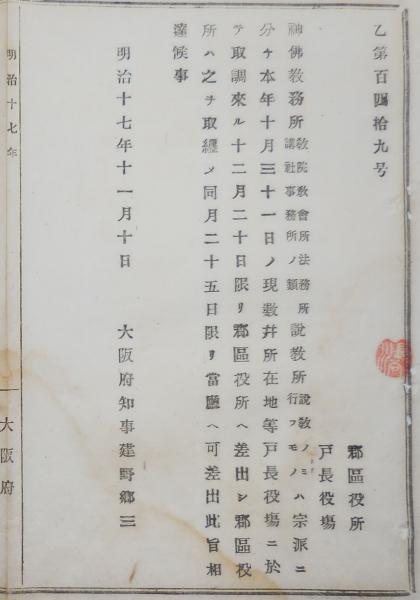 乙第百四拾九号
郡區役所
戸長役塲
神佛教務所教院教會所法務所講社事務所ノ類說教所說教ノミ行フモノハ宗派ニ
分ケ本年十月三十一日ノ現數并所在地等戸長役塲ニ於
テ取調來ル十二月二十日限リ郡區役所ヘ差出シ郡區役
所ハ之ヲ取纏メ同月二十五日限リ當廳ヘ可差出此旨相
達候事
明治十七年十一月十日 大阪府知事建野郷三
明治十七年
大阪府